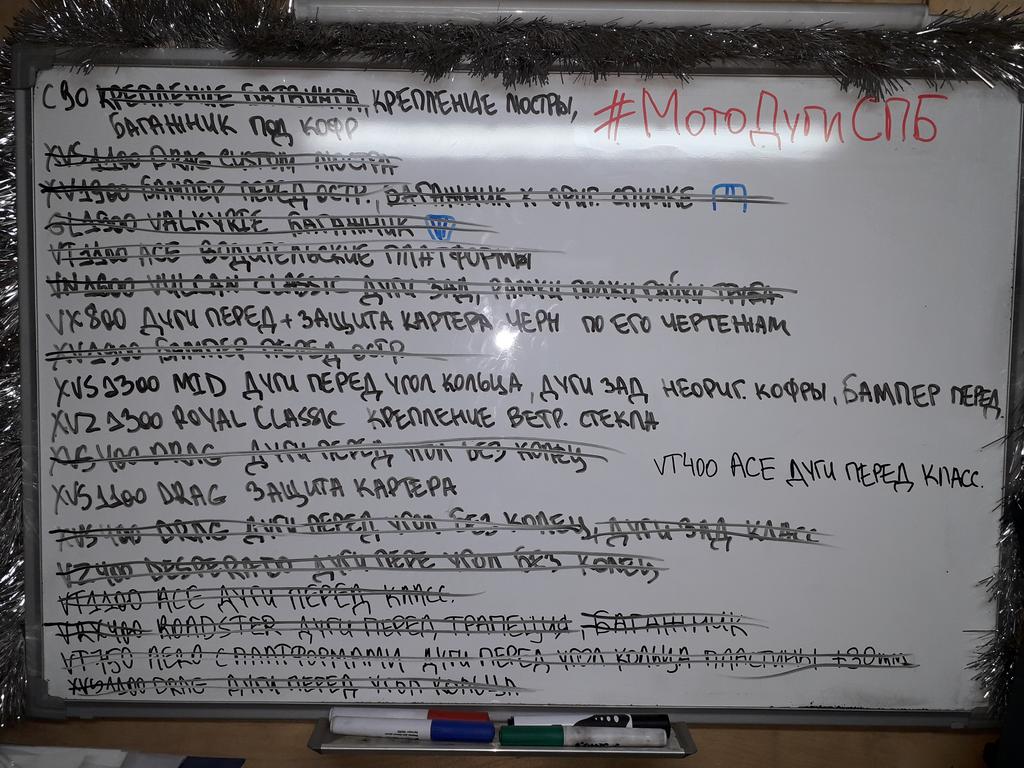 С90 КРЕПЛЕНИЕ БАТВИНГА, КРЕПЛЕНИЕ ЛЮСТРЫ,
#МотоДугиСПБ
БАГАЖНИК ПОД КОФР
XVS1100 DRAG CUSTOM ЛЮСТРА
XV1900 БАМПЕР ПЕРЕД ОСТР., БАГАЖНИК К ОРИГ. СПИНКЕ
GL1500 VALKYRIE БАГАЖНИК
VT1100 ACE ВОДИТЕЛЬСКИЕ ПЛАТФОРМЫ
VN1600 VULCAN CLASSIC ДУГИ ЗАД,
VX800 ДУГИ ПЕРЕД + ЗАЩИТА КАРТЕРА ЧЕРН ПО ЕГО ЧЕРТЕЖАМ
XV1900 БАМПЕР ПЕРЕД ОСТР
XVS1300 MID ДУГИ ПЕРЕД УГОЛ КОЛЬЦА, ДУГИ ЗАД НЕОРИГ. КОФРЫ, БАМПЕР ПЕРЕД
XVZ1300 ROYAL CLASSIC КРЕПЛЕНИЕ ВЕТР. СТЕКЛА
XVS400 DRAG ДУГИ ПЕРЕД УГОЛ БЕЗ КОЛЕЦ
VT400 ACE ДУГИ ПЕРЕД КЛАСС.
XVS1100 DRAG ЗАЩИТА КАРТЕРА
XVS400 DRAG ДУГИ ПЕРЕД УГОЛ БЕЗ КОЛЕЦ, ДУГИ ЗАД КЛАСС
VZ400 DESPERADO ДУГИ ПЕРЕ УГОЛ БЕЗ КОЛЕЦ
VT1100 ACE ДУГИ ПЕРЕД КЛАСС.
VRX400 ROADSTER ДУГИ ПЕРЕД ТРАПЕЦИЯ, БАГАЖНИК
VT750 AERO С ПЛАТФОРМАМИ ДУГИ ПЕРЕД УГОЛ КОЛЬЦА ПЛАСТИНЫ +30mm
XVS1100 DRAG ДУГИ ПЕРЕД УГОЛ КОЛЬЦА